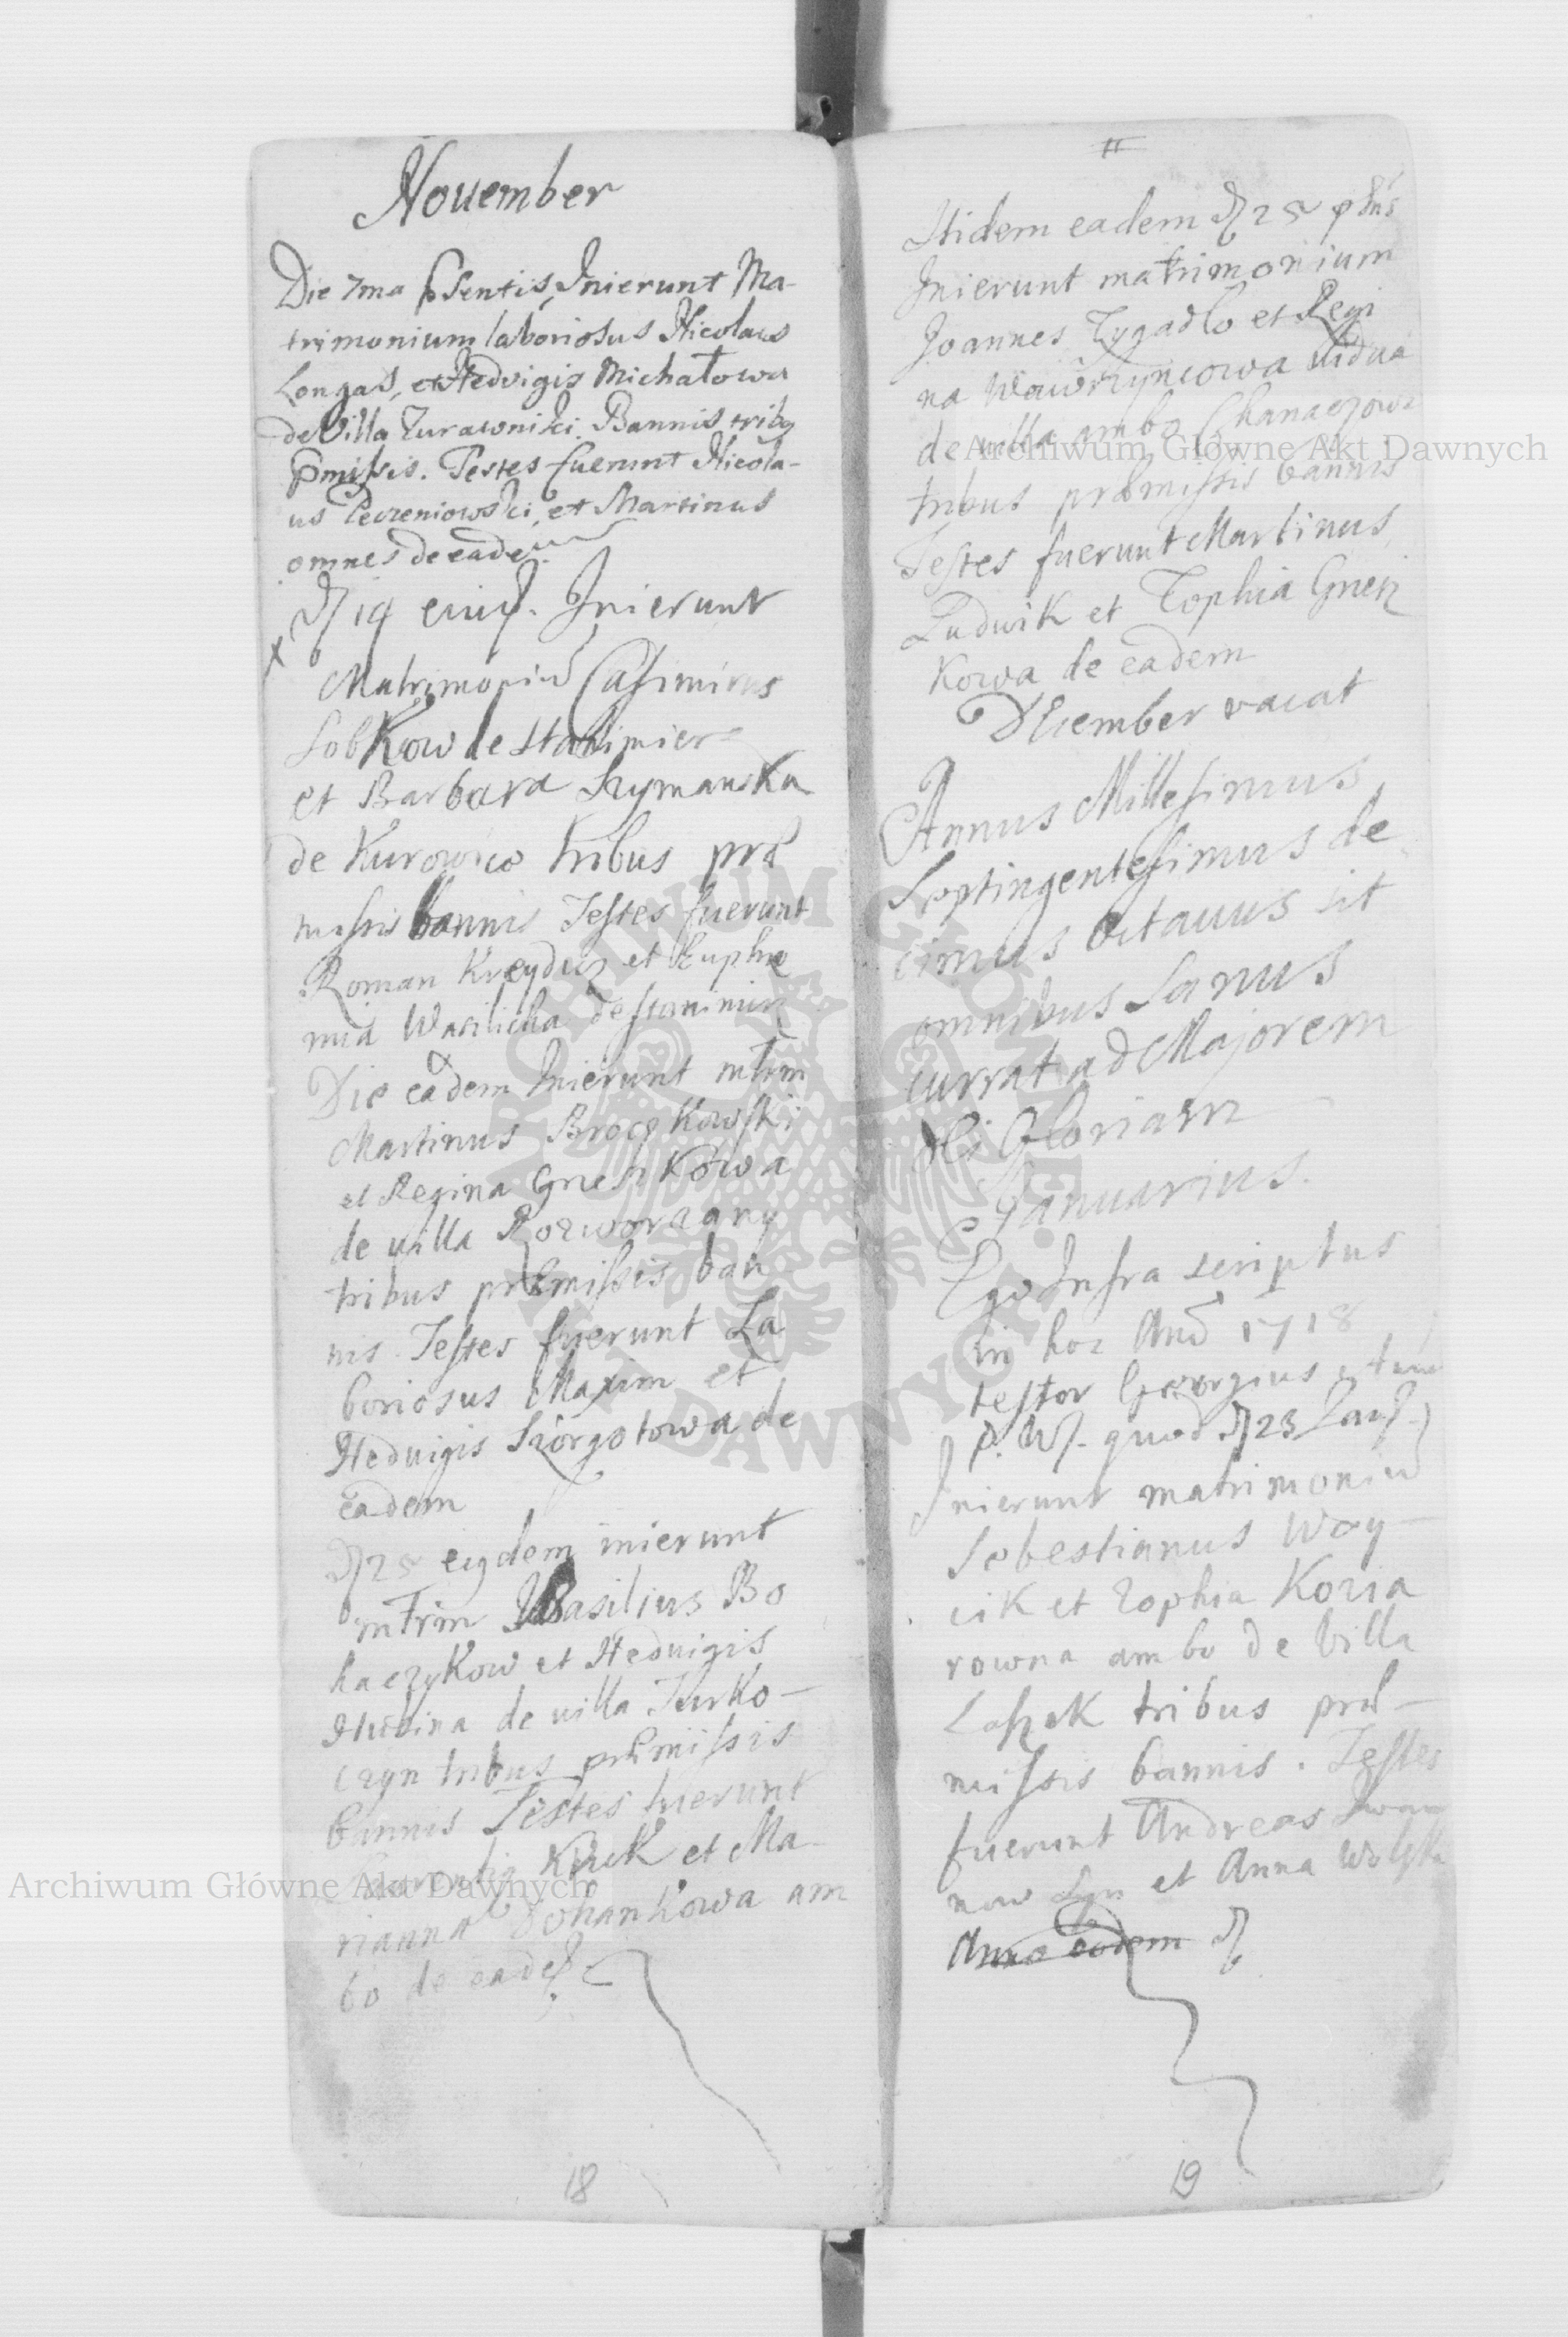 November
Die 7ma psentis, Inierunt Ma-
trimonium laboriosus Nicolaus
Longas, et Hedvigis Michałowa
de Villa Zurawniki. Bannis tribq
pmissis. Testes fuerunt Nicola-
us Peczeniowski, et Martinus
omnes de eadem
D 14 eiusd. Inierunt
x
Matrimoniu Casimirus
Sobkow de Stanimier
et Barbara Szymanska
de Kurowice tribus præ
missis bannis Testes fuerunt
Roman et Euphe
mia Wasilicha de Stanimirz
Die eadem Inierunt mtrim
Martinus Broczkowski
et Regina Gnezikowa
de villa Rozworzany
tribus præmissis ban
nis. Testes fuerunt La
boriosus Maxim et
Hedvigis Szorgotowa de
eadem
D 25 eiqdem inierunt
mtrim Basilius Bo
haczykow et Hedvigis
de villa Turko-
czyn tribus præmissis
bannis Testes fuerunt
Kruk et Ma-
rianna Johankowa am
bo de eadem
18
II
Itidem eadem D 25 pntis
Inierunt matrimonium
Joannes Zygadło et Regi
na Wawrzyncowa vidua
de villa ambo Chanaczowa
tribus præmissis bannis
Testes fuerunt Martinus
Ludwik et Zophia Gnezi
kowa de eadem
December vacat
Annus Millesimus
Septingentesimus de
cimus octavus sit
omnibus Sanus
currat ad Majorem
Di Gloriam
Januarius.
Ego Infra scriptus
in hoc Ano 1718
testor Georgius
P. W. quod D 23
Inierunt matrimoniu
Sebestianus Woy-
cik et Zophia Kozia
rowna ambo de Villa
Laszek tribus præ-
missis bannis. Testes
fuerunt Andreas Iwan
now Syn et Anna Wolska
Anna eadem D
19
Archiwum Główne Akt Dawnych
Archiwum Główne Akt Dawnych
ARCHIWUM GŁÓWNE AKT DAWNYCH